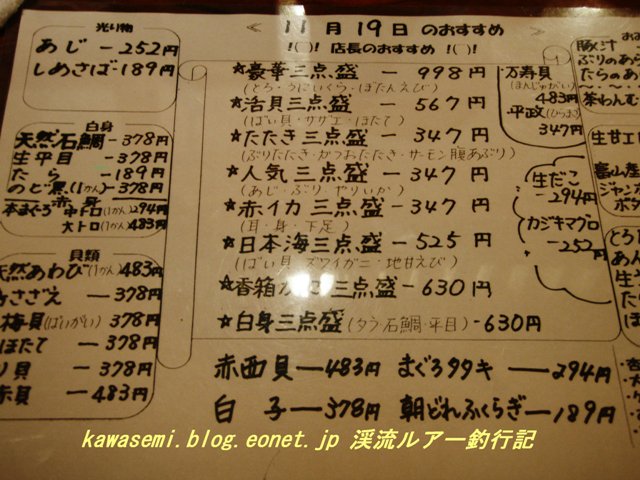 ≪ 11月19日 のおすすめ ≫
!()! 店長のおすすめ !()!
光り物
あじ ー252円
しめさば-189円
白身
天然石鯛-378円
生平目 -378円
たら -189円
のど黒(1カン)-378円
赤身
本まぐろ 中トロ(1カン)294円
大トロ(1カン)483円
貝類
天然あわび(1カン)483円
さざえ ー378円
梅貝(ばいがい)378円
ほたて ー378円
り貝 ー378円
赤貝 ー483円
★豪華三点盛 ー 998円
(とろ・うにいくら・ぼたんえび)
★活貝三点盛 ー 567円
(ばい貝・サザエ・ほたて)
★たたき三点盛 ー 347円
(ぶりたたき・かつおたたき・サーモン腹あぶり)
★人気三点盛 ー 347円
(あじ・ぶり・やりいか)
★赤イカ三点盛 ー 347円
(耳・身・下足)
★日本海三点盛 ー 525円
(ばい貝・ズワイガニ・地甘えび)
★香箱かに三点盛 ー 630円
★白身三点盛(タラ・石鯛・平目)-630円
赤西貝ー483円 まぐろタタキ ー294円
白子ー378円 朝どれふくらぎー189円
万寿貝
(まんじゅがい)
483円
平政(ひらまさ)
347円
生だこ
-294円
カジキマグロ
-252円
豚汁
ぶりのあら
たらのあら
茶わんむ
生甘エ
富山産
ジャン
ボタ
とろ
あん
生
たた
kawasemi.blog.eonet.jp 渓流ルアー釣行記